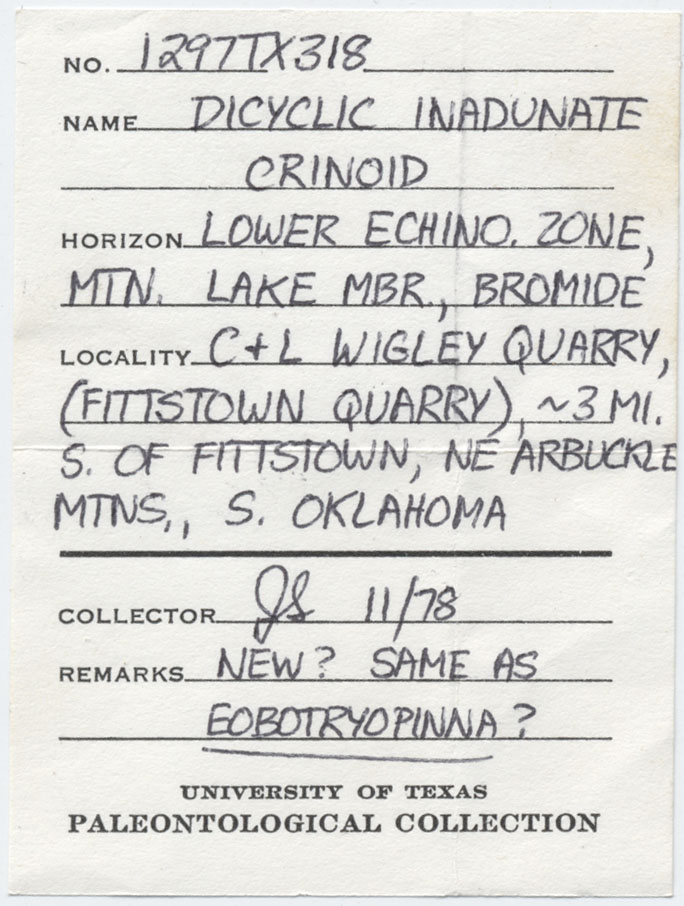 NO. 1297TX318
NAME DICYCLIC INADUNATE
CRINOID
HORIZON LOWER ECHINO. ZONE,
MTN. LAKE MBR., BROMIDE
LOCALITY C+L WIGLEY QUARRY,
(FITTSTOWN QUARRY), ~3 MI.
S. OF FITTSTOWN, NE ARBUCKLE
MTNS,, S. OKLAHOMA
COLLECTOR JS 11/78
REMARKS NEW? SAME AS
EOBOTRYOPINNA?
UNIVERSITY OF TEXAS
PALEONTOLOGICAL COLLECTION